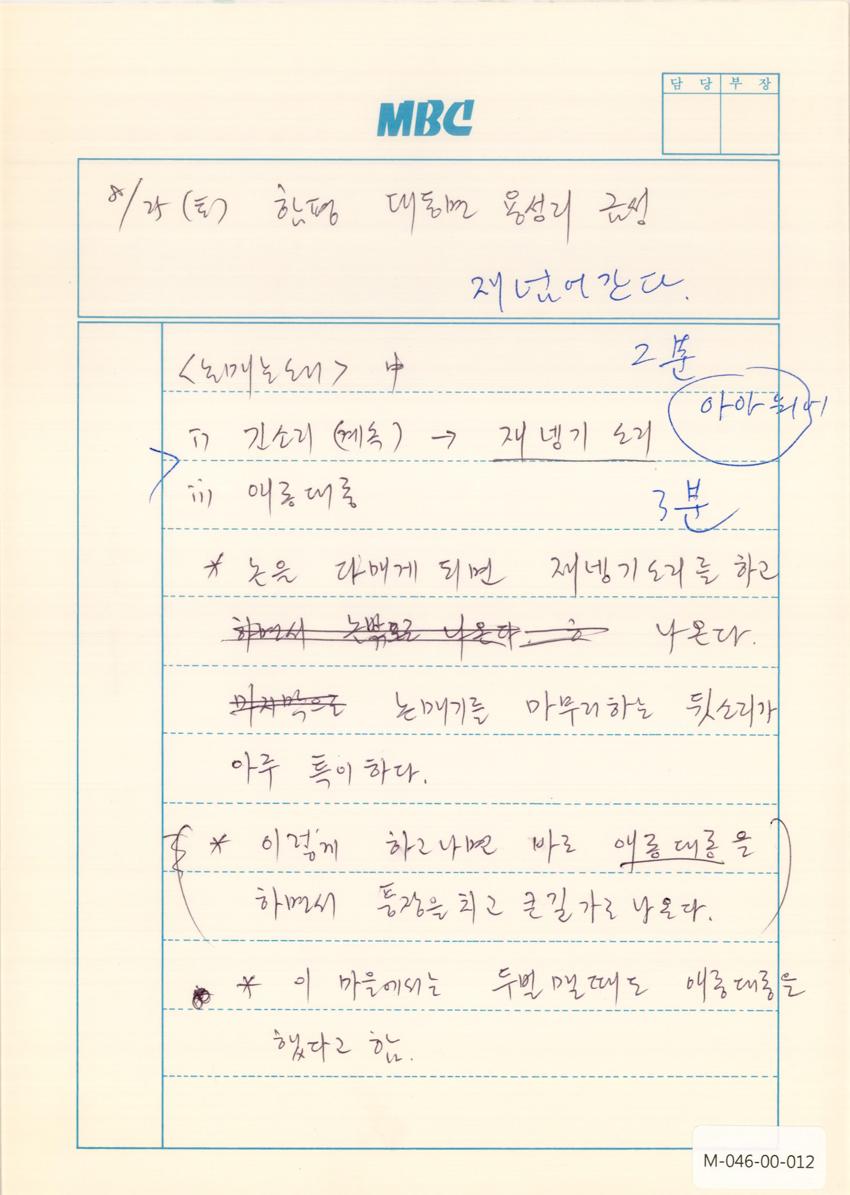 담 당 부 장
MBC
8/25 (토) 함평 대동면 용성리 금성
재 넘어간다.
<논매는소리> 中
2분
아아 뒤이
ii) 긴소리 (계속) → 재넹기 소리
iii) 애롱대롱
3분
* 논을 다매게 되면 재넹기소리를 하고
하면서 논밖으로 나온다. 나온다.
마지막으로 논매기를 마무리하는 뒷소리가
아주 특이하다.
* 이렇게 하고나면 바로 애롱대롱을
하면서 풍장을 치고 큰길가로 나온다.
* 이 마을에서는 두벌 맬때도 애롱대롱을
했다고 함.
M-046-00-012